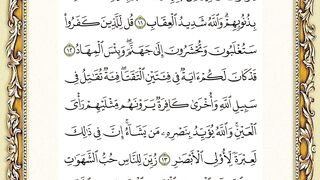 بِذُنُوبِهِمْ وَٱللَّهُ شَدِيدُ ٱلْعِقَابِ ١١ قُل لِّلَّذِينَ كَفَرُوا۟
سَتُغْلَبُونَ وَتُحْشَرُونَ إِلَىٰ جَهَنَّمَ وَبِئْسَ ٱلْمِهَادُ ١٢
قَدْ كَانَ لَكُمْ ءَايَةٌ فِى فِئَتَيْنِ ٱلْتَقَتَا فِئَةٌ تُقَٰتِلُ فِى
سَبِيلِ ٱللَّهِ وَأُخْرَىٰ كَافِرَةٌ يَرَوْنَهُم مِّثْلَيْهِمْ رَأْىَ
ٱلْعَيْنِ وَٱللَّهُ يُؤَيِّدُ بِنَصْرِهِۦ مَن يَشَآءُ إِنَّ فِى ذَٰلِكَ
لَعِبْرَةً لِّأُو۟لِى ٱلْأَبْصَٰرِ ١٣ زُيِّنَ لِلنَّاسِ حُبُّ ٱلشَّهَوَٰتِ